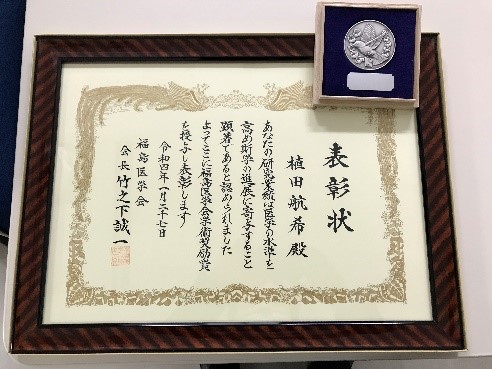 表彰状
植田航希殿
あなたの研究業績は医学の水準を
高め斯学の進展に寄与すること
顕著であると認められました
よってここに福島医学会学術奨励賞
を授与し表彰します
令和四年一月二十七日
福島医学会
会長竹之下誠一